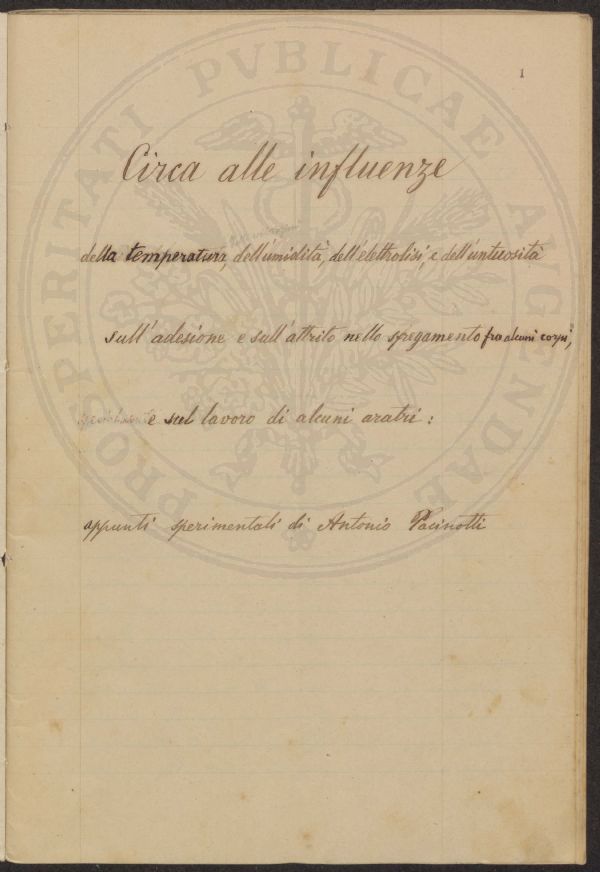 1
PROSPERITATI PVBLICAE AVGENDAE
Circa alle influenze
della temperatura, dell'umidità, dell'elettrolisi, e dell'untuosità
sull'adesione e sull'attrito nello spregamento fra alcuni corpi,
e sul lavoro di alcuni aratri:
appunti sperimentali di Antonio Pacinotti